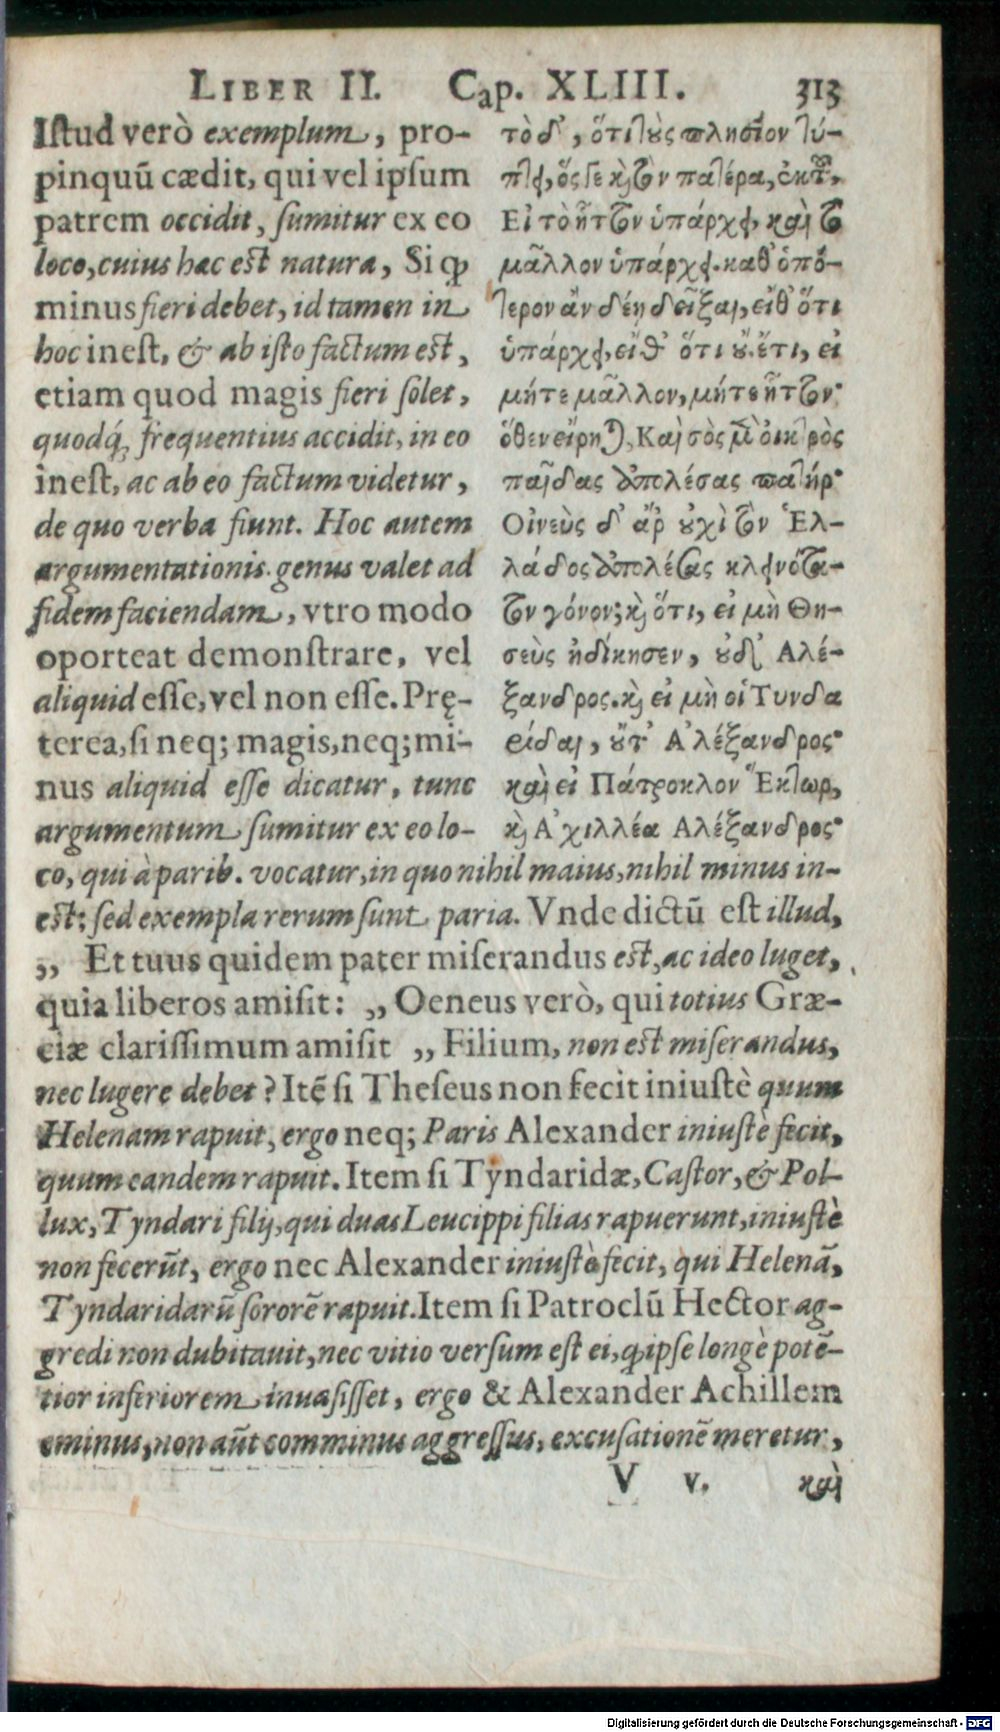 LIBER II. Cap. XLIII. 313
Istud verò exemplum, pro-
pinquũ cædit, qui vel ipsum
patrem occidit, sumitur ex eo
loco, cuius hæc est natura, Si ꝙ
minus fieri debet, id tamen in
hoc inest, & ab isto factum est,
etiam quod magis fieri solet,
quodq́; frequentius accidit, in eo
inest, ac ab eo factum videtur,
de quo verba fiunt. Hoc autem
argumentationis genus valet ad
fidem faciendam, vtro modo
oporteat demonstrare, vel
aliquid esse, vel non esse. Prę-
terea, si neq; magis, neq; mi-
nus aliquid esse dicatur, tunc
argumentum sumitur ex eo lo-
τὸ δ᾽, ὅτι τοὺς πλησίον τύ-
πτει, ὅς γε καὶ τὸν πατέρα, ἐκ τοῦ,
Εἰ τὸ ἧττον ὑπάρχει, καὶ τὸ
μᾶλλον ὑπάρχει. καθ᾽ ὁπό-
τερον ἂν δέῃ δεῖξαι, εἴθ᾽ ὅτι
ὑπάρχει, εἴθ᾽ ὅτι οὔ. ἔτι, εἰ
μήτε μᾶλλον, μήτε ἧττον·
ὅθεν εἴρηται, Καὶ σὸς μὲν οἰκτρὸς
παῖδας ἀπολέσας πατήρ·
Οἰνεὺς δ᾽ ἄρ᾽ οὐχὶ τὸν Ἑλ-
λάδος ἀπολέσας κλεινότα-
τον γόνον; καὶ ὅτι, εἰ μὴ Θη-
σεὺς ἠδίκησεν, οὐδ᾽ Αλέ-
ξανδρος. καὶ εἰ μὴ οἱ Τυνδα
ρίδαι, οὔτ᾽ Α᾽λέξανδρος·
καὶ εἰ Πάτροκλον Ἕκτωρ,
καὶ Α᾽χιλλέα Αλέξανδρος·
co, qui à parib. vocatur, in quo nihil maius, nihil minus in-
est: sed exempla rerum sunt paria. Vnde dictũ est illud,
„ Et tuus quidem pater miserandus est, ac ideo luget,
quia liberos amisit: „ Oeneus verò, qui totius Græ-
ciæ clarissimum amisit „ Filium, non est miserandus,
nec lugere debet? Itẽ si Theseus non fecit iniustè quum
Helenam rapuit, ergo neq; Paris Alexander iniustè fecit,
quum eandem rapuit. Item si Tyndaridæ, Castor, & Pol-
lux, Tyndari filij, qui duas Leucippi filias rapuerunt, iniustè
non fecerũt, ergo nec Alexander iniustè fecit, qui Helenã,
Tyndaridarũ sororẽ rapuit. Item si Patroclũ Hector ag-
gredi non dubitauit, nec vitio versum est ei, ꝙ ipse longè potẽ-
tior inferiorem inuasisset, ergo & Alexander Achillem
eminus, non aũt comminus aggressus, excusationẽ meretur,
V v. καὶ
Digitalisierung gefördert durch die Deutsche Forschungsgemeinschaft - DFG